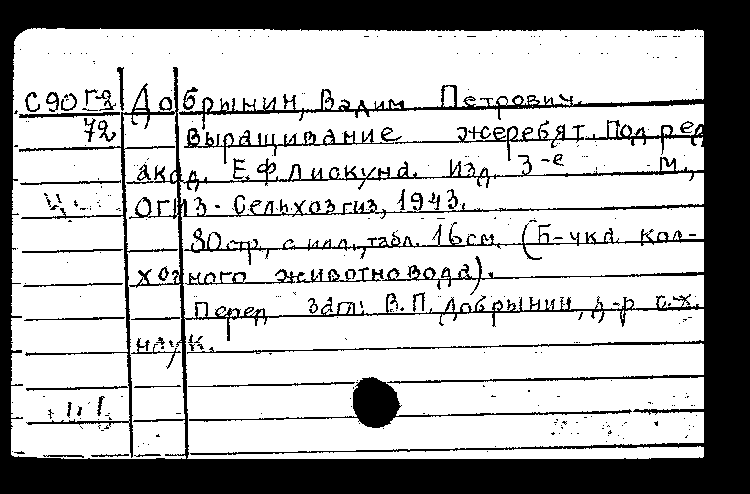 С90 Г-2 Добрынин, Вадим Петрович.
72 Выращивание жеребят. Под ред
акад. Е.Ф. Лискуна. Изд. 3-е. М.,
ОГИЗ - Сельхозгиз, 1943.
80 стр., с илл., табл. 16 см. (Б-чка кол-
хозного животновода).
Перед загл: В.П. Добрынин, д-р с.-х.
наук.